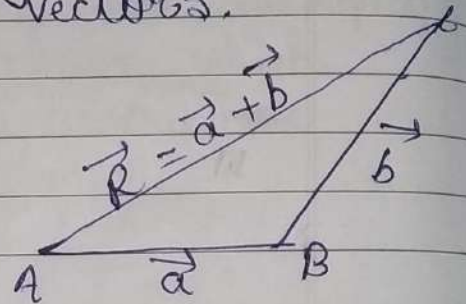 vectors.
C
R⃗ = a⃗ + b⃗
b⃗
A a⃗ B